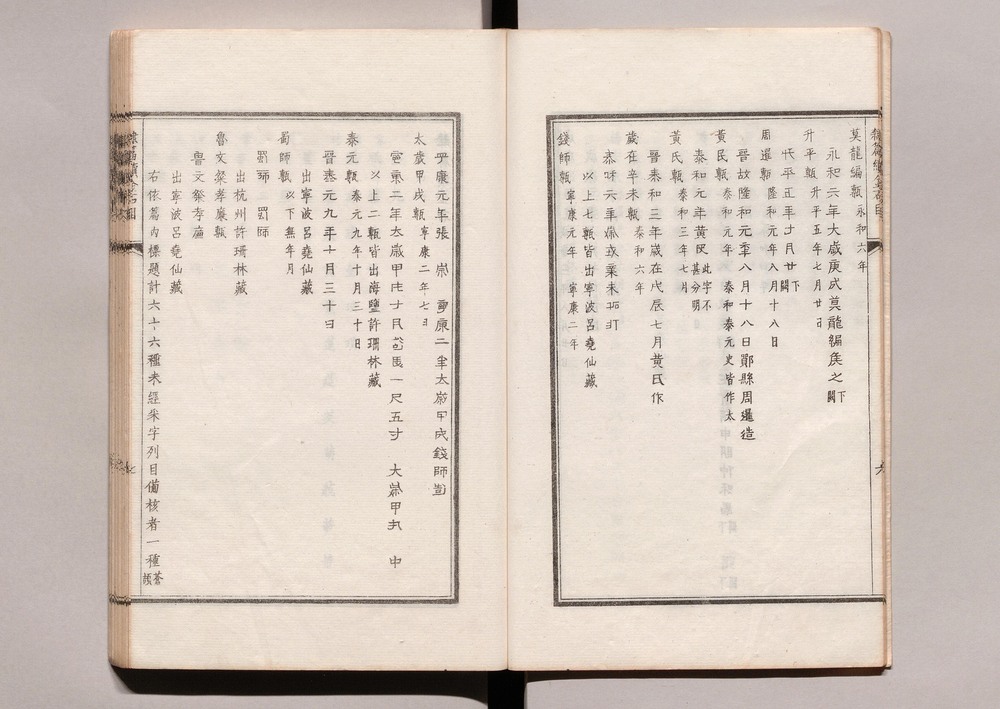 莫龍編甎 永和六年
永和六年大歲庚戌莫龍編矦之 下闕
升平甎 升平五年七月廿日
升平五年七月廿 下闕
周暹甎 隆和元年八月十八日
晉故隆和元年八月十八日鄮縣周暹造
黃民甎 泰和元年 泰和泰元史皆作太
泰和元年黃民 此字不甚分明
黃氏甎 泰和三年七月
晉泰和三年歲在戊辰七月黃氏作
歲在辛未甎 泰和六年
以上七甎皆出寧波呂堯仙藏
錢師甎 寧康元年 寧康二年
寧康元年張 寧康二年太歲甲戌錢師
太歲甲戌甎 寧康二年七月
寧康二年太歲甲戌 一尺五寸 大歲甲 中
以上二甎皆出海鹽許珊林藏
泰元甎 泰元九年十月三十日
晉泰元九年十月三十日
出寧波呂堯仙藏
蜀師甎 以下無年月
蜀師 蜀師
出杭州許珊林藏
魯文粲孝廬甎
魯文粲孝廬
出寧波呂堯仙藏
右依舊內標題計六十六種未經采字列目備核者一種